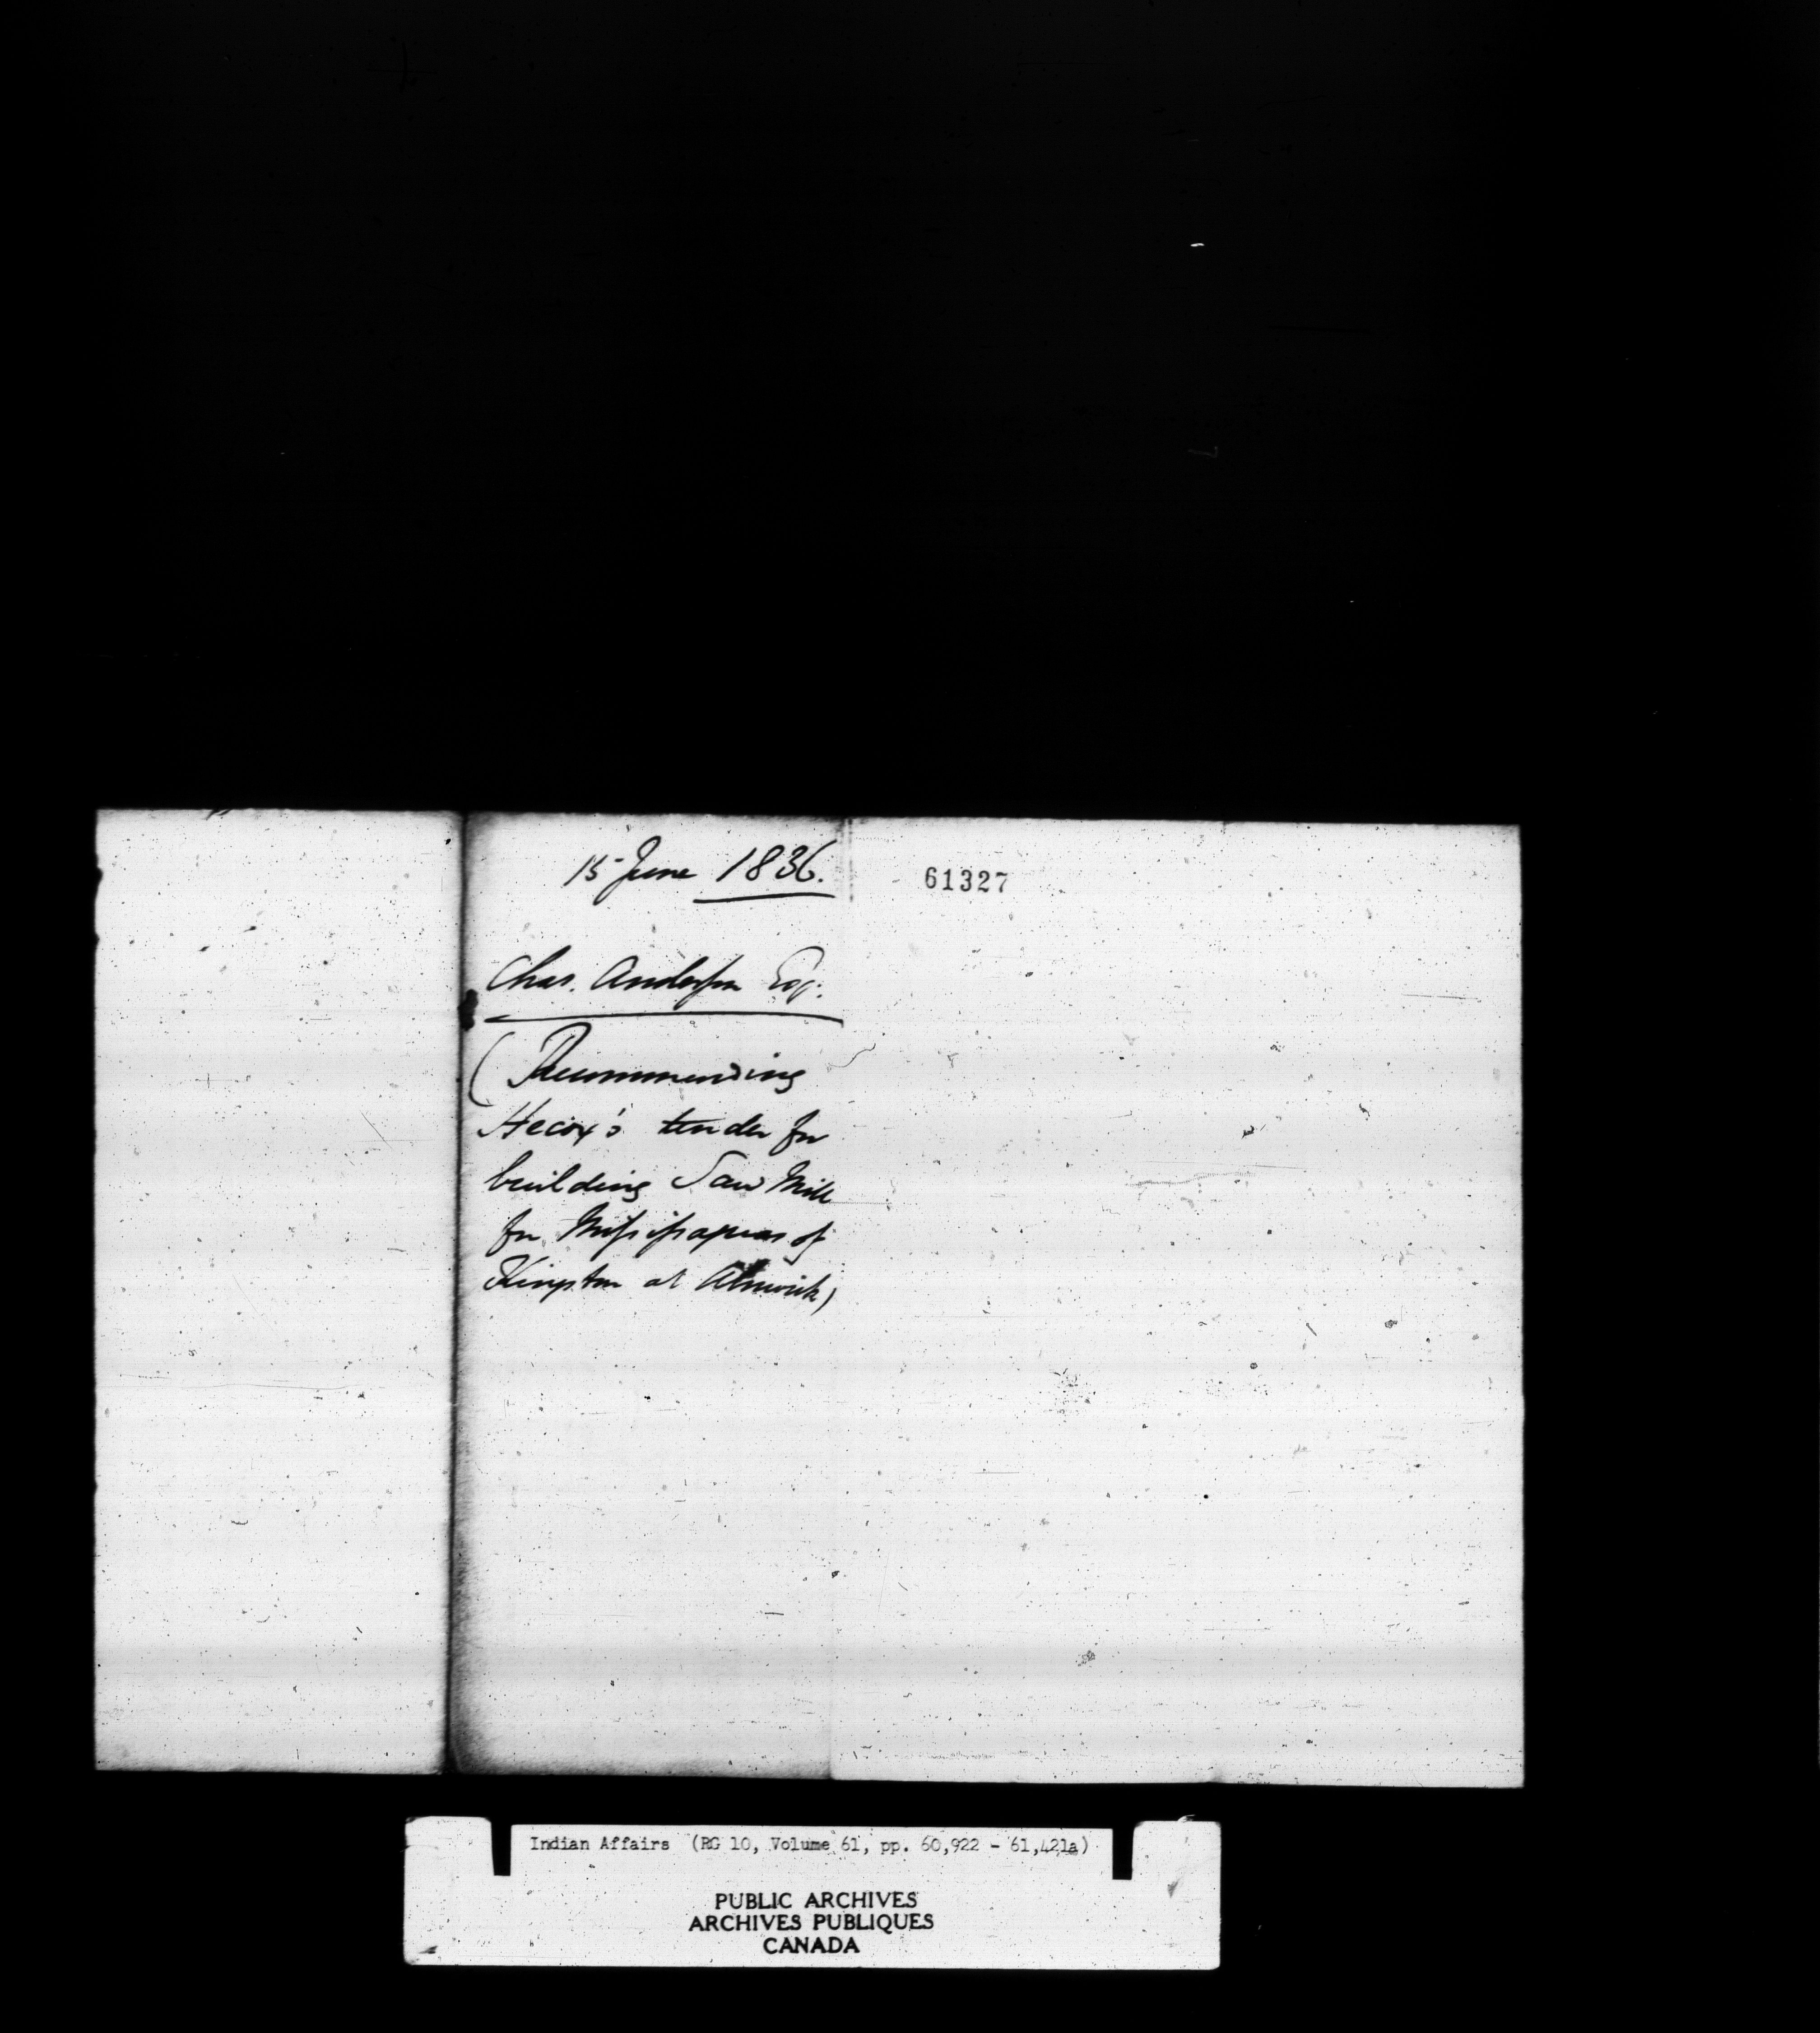 15 June 1836.
61327
Chas. Anderson Esq.
(Recommending
Hecox's tender for
building Saw Mill
for Missisaguas of
Kingston at Alnwick)
Indian Affairs (RG 10, Volume 61, pp. 60,922 - 61,421a)
PUBLIC ARCHIVES
ARCHIVES PUBLIQUES
CANADA